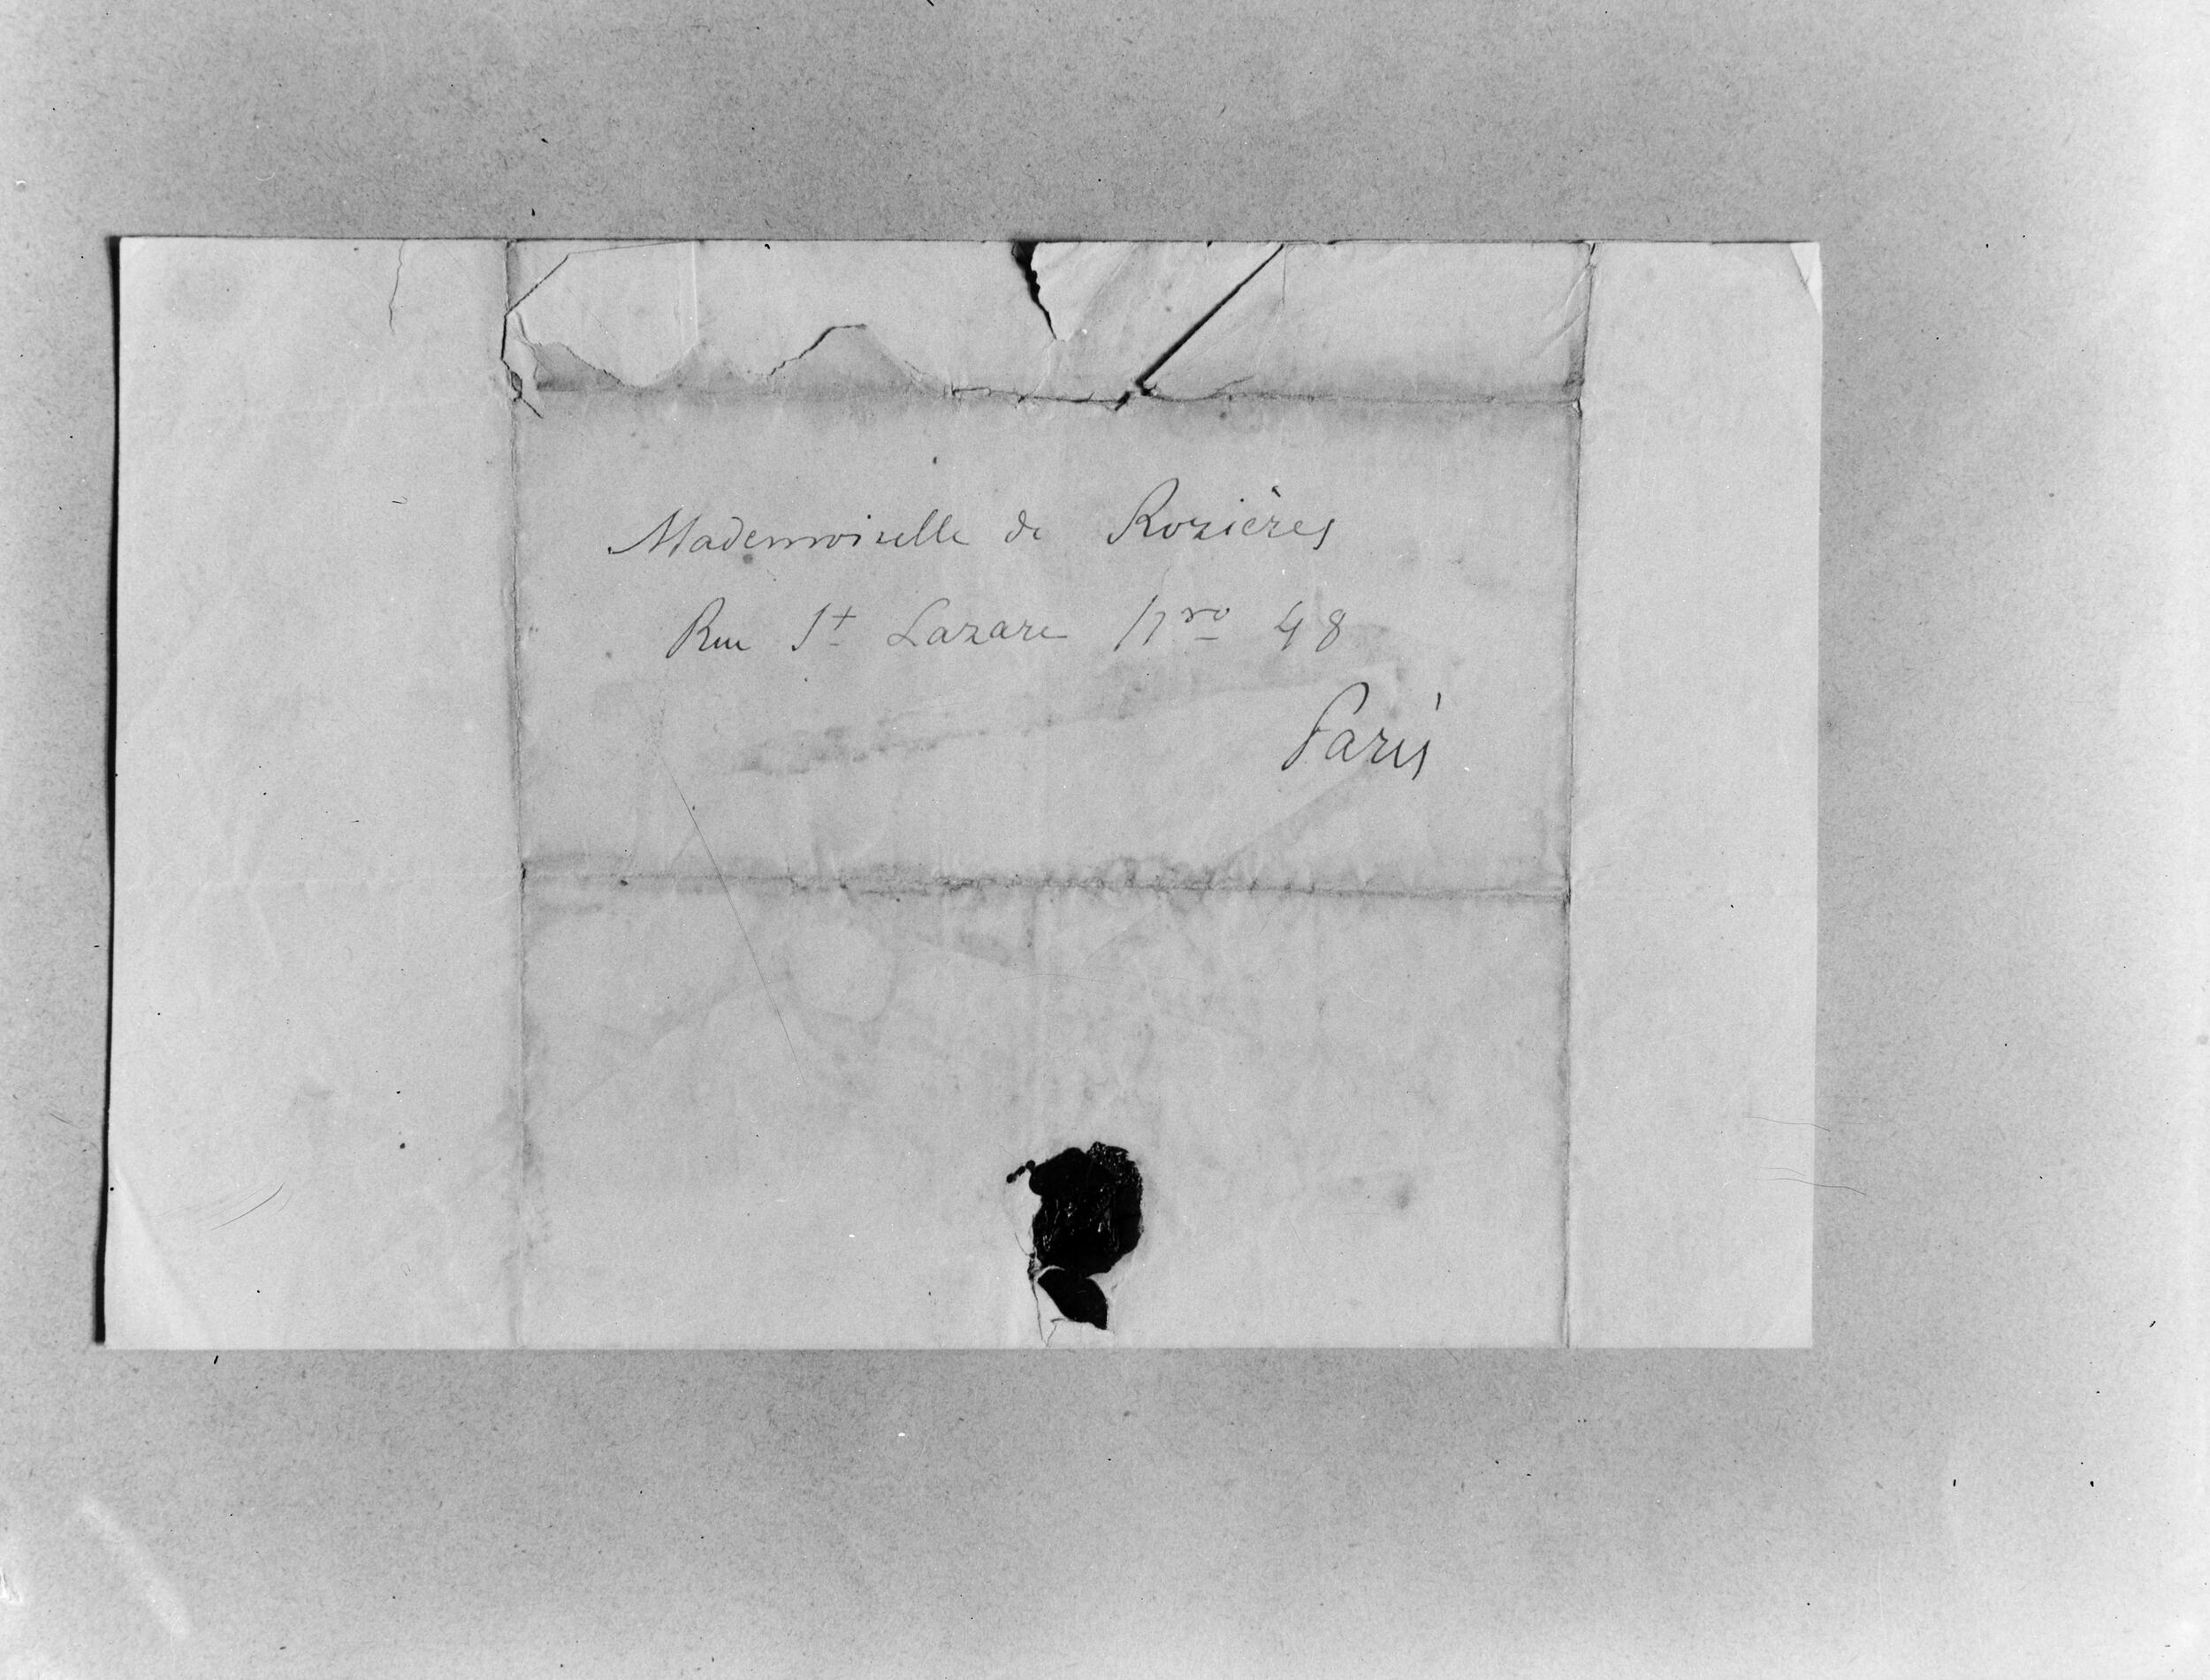 Mademoiselle de Rozières
Rue St Lazare Nro 48
Paris